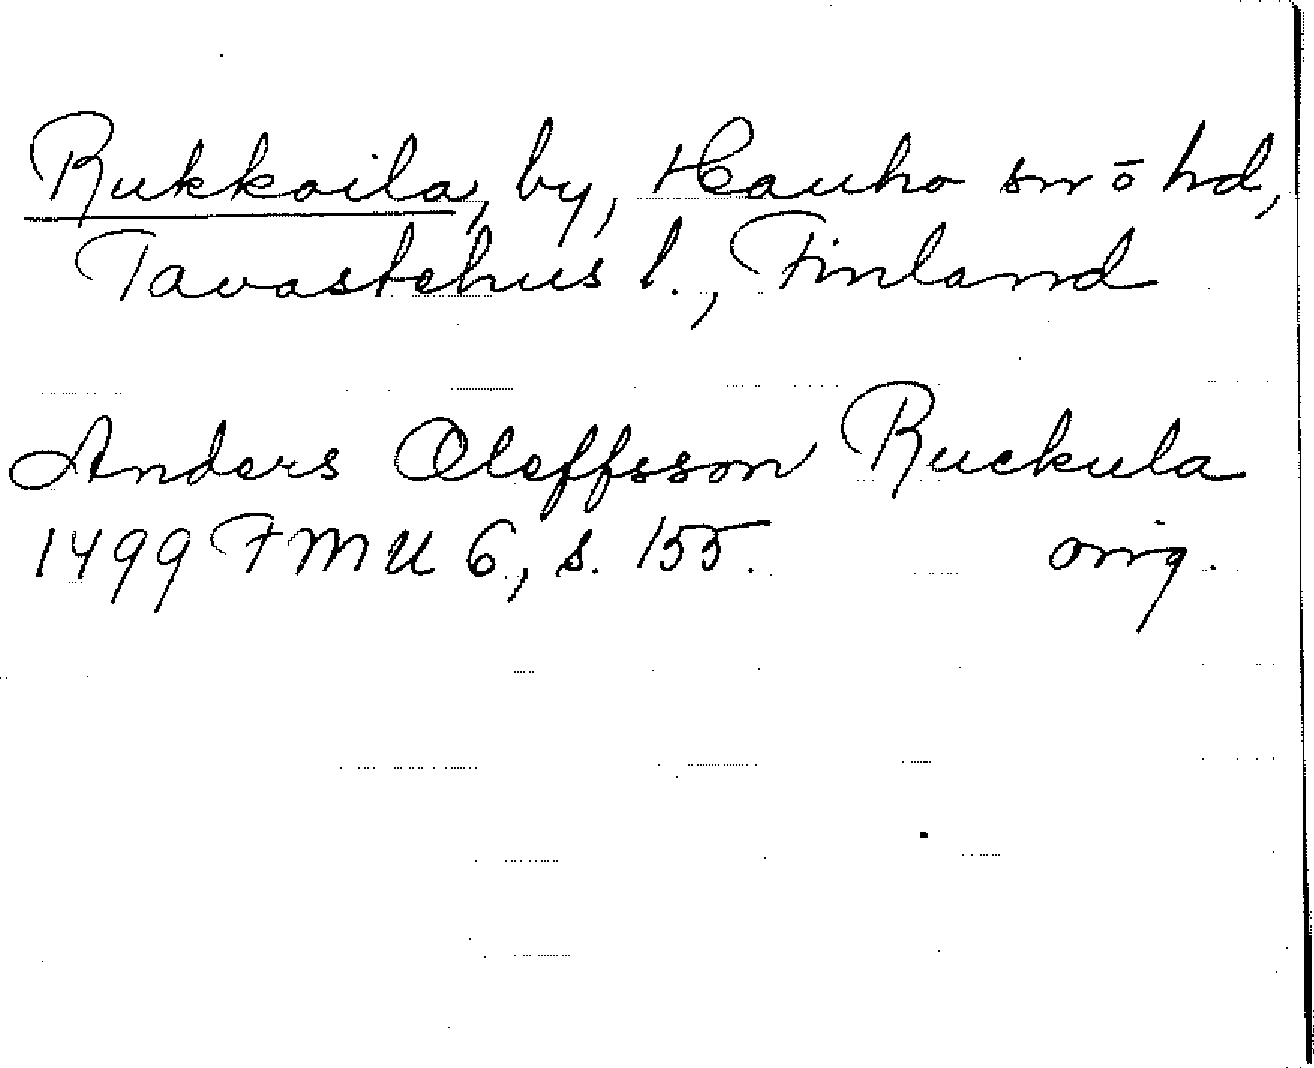 Rukkoila, by, Hauho sn o hd,
Tavastehus l., Finland
Anders Oleffsson Ruckula
1499 FMU 6, s. 155. orig.